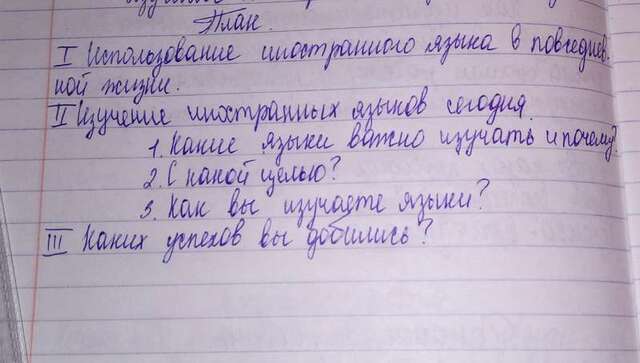 План.
I Использование иностранного языка в повседнев-
ной жизни.
II Изучение иностранных языков сегодня.
1. Какие языки важно изучать и почему?
2. С какой целью?
3. Как вы изучаете языки?
III Каких успехов вы добились?